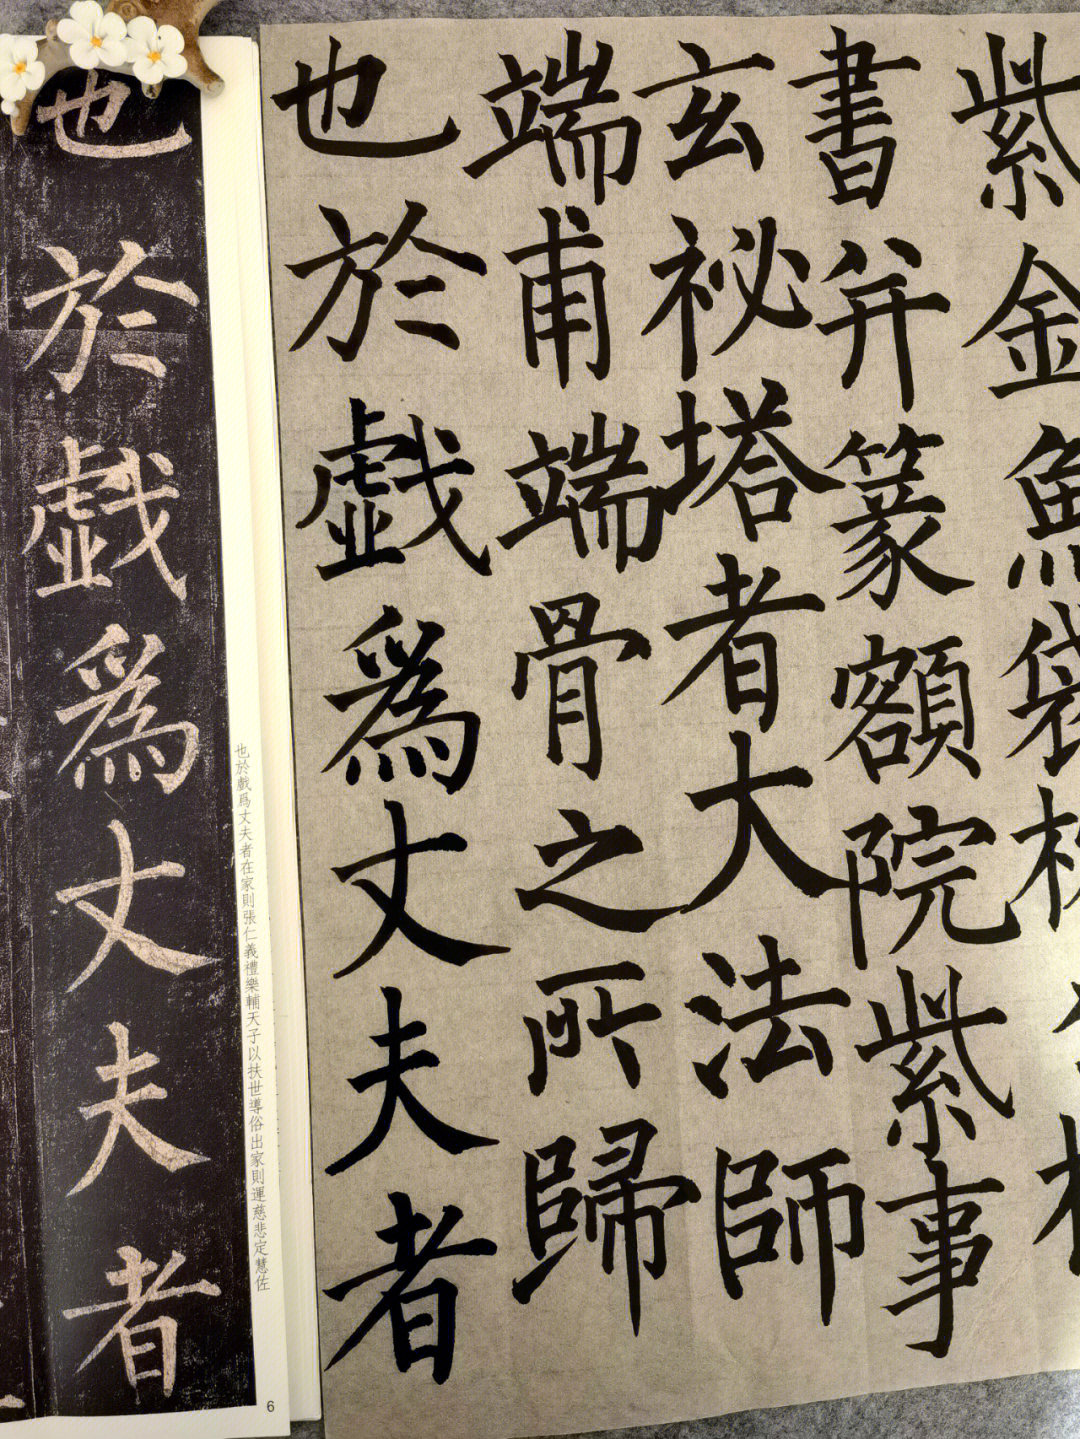 紫金魚袋
書并篆額院紫事
玄祕塔者大法師
端甫端骨之所歸
也於戱爲丈夫者
也於戲爲丈夫者在家則張仁義禮樂輔天子以扶世導俗出家則運慈悲定慧佐
6
也於戱爲丈夫者